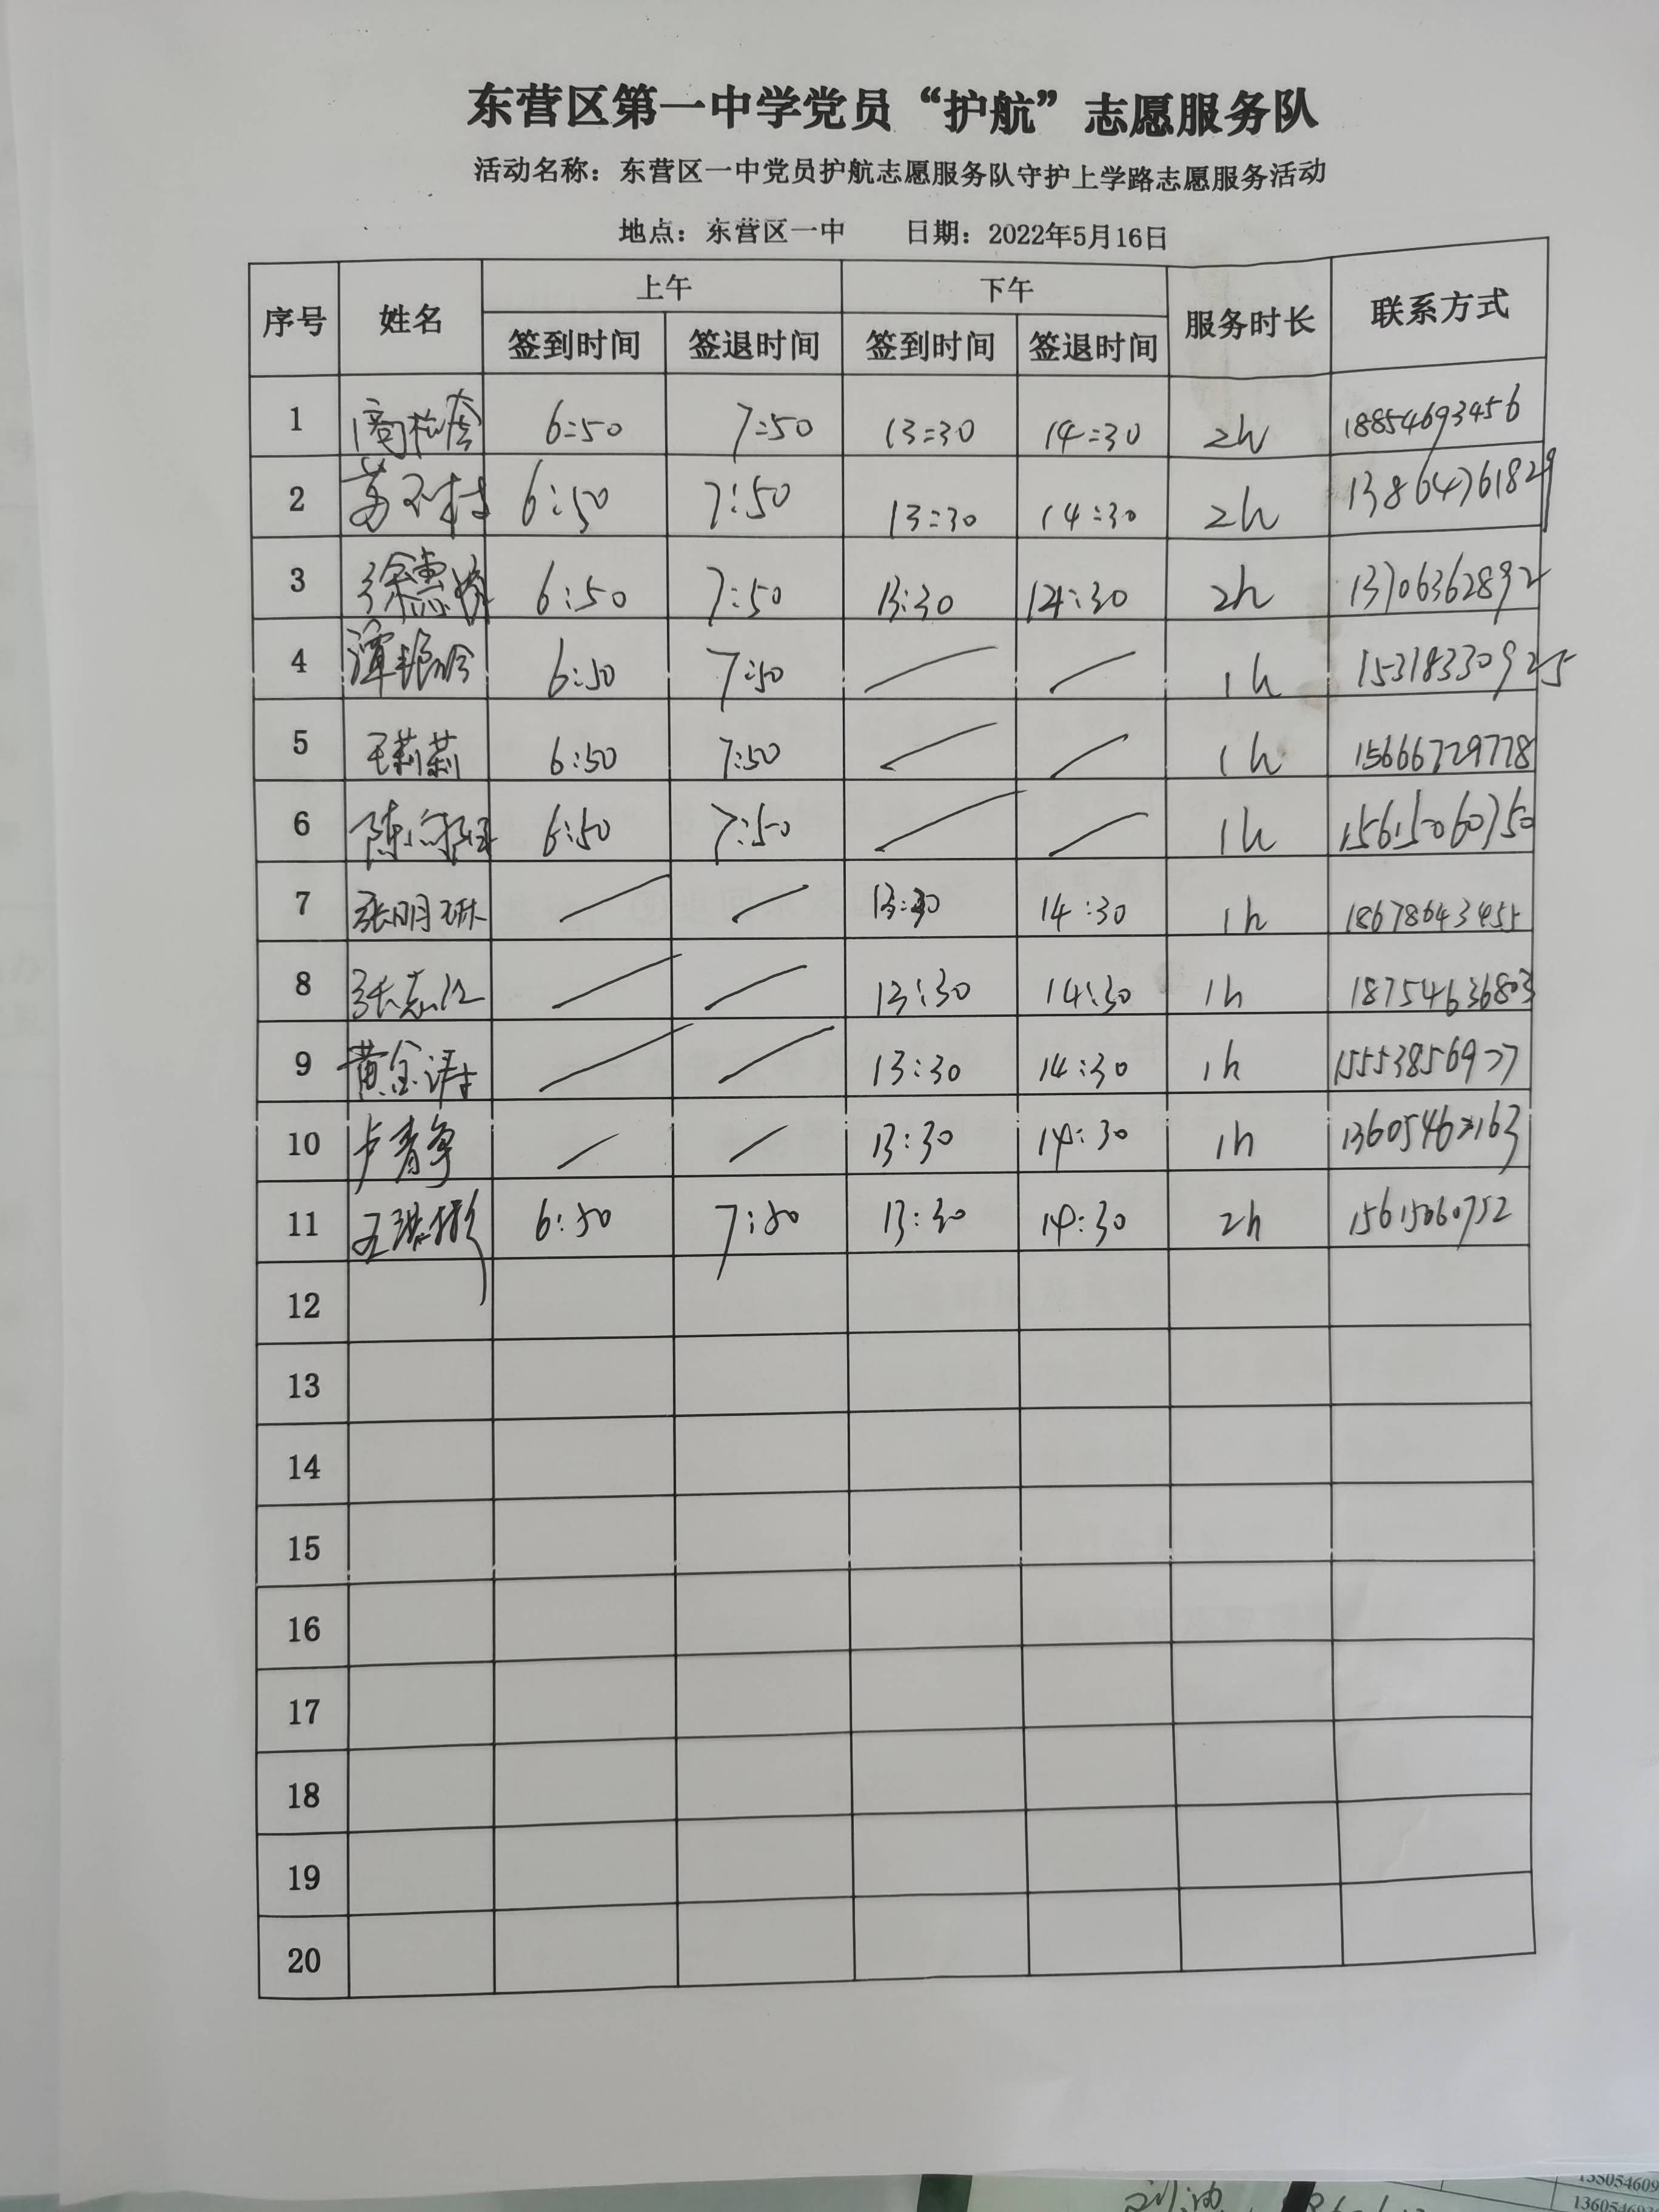 东营区第一中学党员“护航”志愿服务队
活动名称：东营区一中党员护航志愿服务队守护上学路志愿服务活动
地点：东营区一中 日期：2022年5月16日
序号 姓名 上午 下午 服务时长 联系方式
签到时间 签退时间 签到时间 签退时间
1 6:50 7:50 13:30 14:30 2h 18854693456
2 6:50 7:50 13:30 14:30 2h 13864761829
3 徐惠 6:50 7:50 13:30 14:30 2h 13706362892
4 6:50 7:50 / / 1h 15318330925
5 王莉莉 6:50 7:50 / / 1h 15666729778
6 陈 6:50 7:50 / / 1h 15615060750
7 张明琳 / / 13:30 14:30 1h 18678643455
8 张志江 / / 13:30 14:30 1h 18754636803
9 黄金 / / 13:30 14:30 1h 15553856977
10 卢青争 / / 13:30 14:30 1h 13605462163
11 王 6:50 7:50 13:30 14:30 2h 15615060752
12
13
14
15
16
17
18
19
20